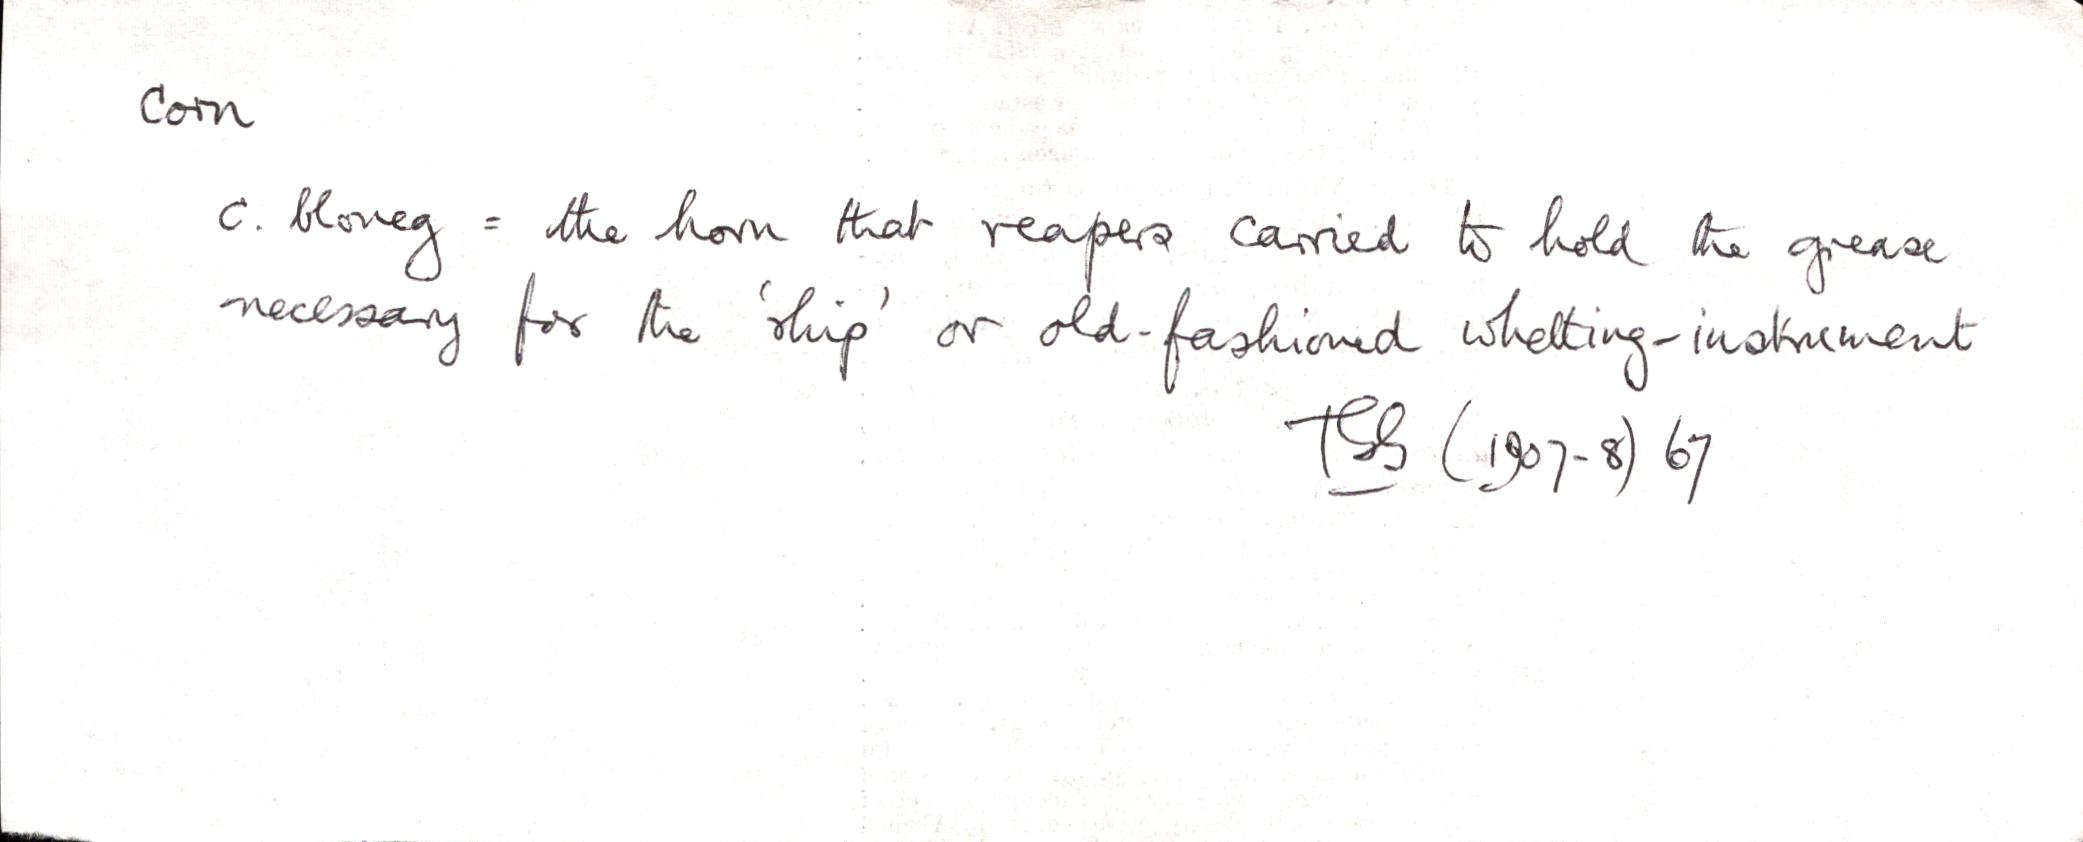 Corn
c. bloneg = the horn that reapers carried to hold the grease
necessary for the 'rhip' or old-fashioned whetting-instrument
TGG (1907-8) 67